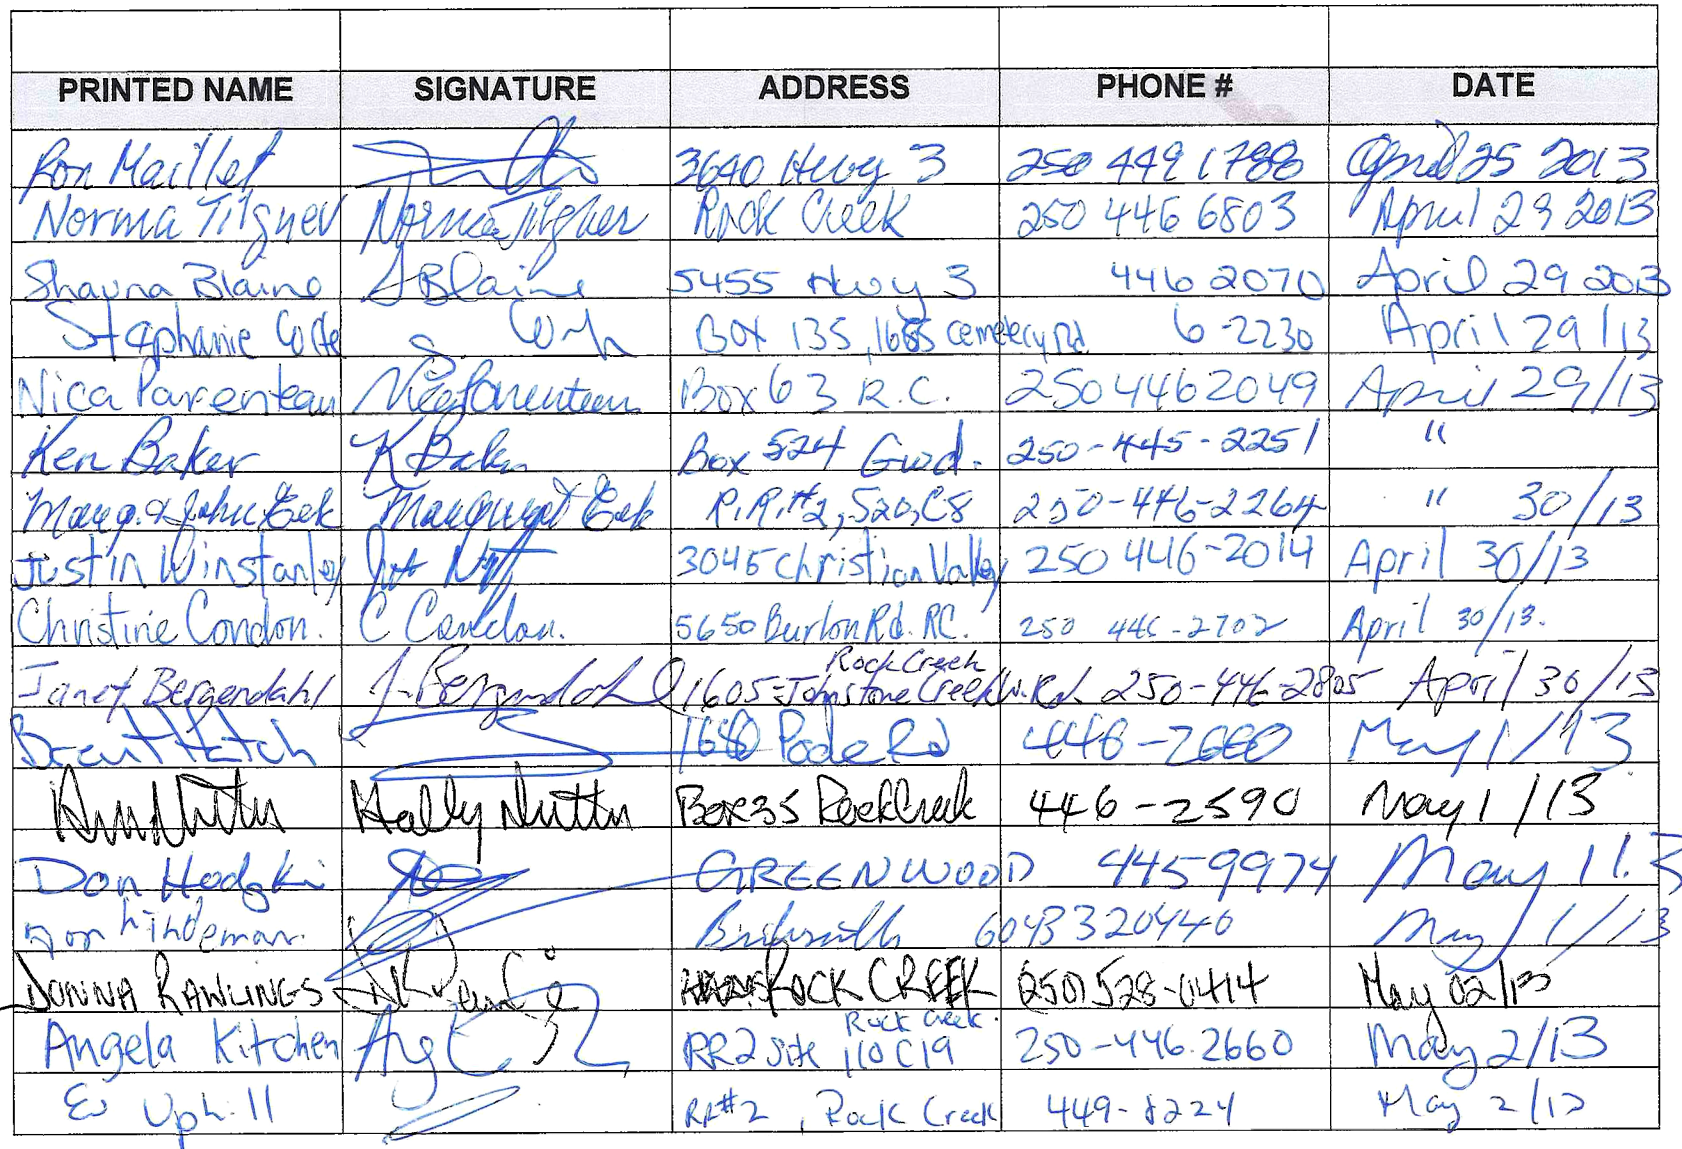 PRINTED NAME SIGNATURE ADDRESS PHONE # DATE
Ron Maillet 3640 Hwy 3 250 449 1788 April 25 2013
Norma Tilgner Norma Tilgner Rock Creek 250 446 6803 April 29 2013
Shauna Blaine S Blaine 5455 Hwy 3 446 2070 April 29 2013
Stephanie Box 135, Cemetery Rd. 6-2230 April 29/13
Nica Parenteau Nica Parenteau Box 63 R.C. 250 446 2049 April 29/13
Ken Baker K Baker Box 524 Gwd. 250-445-2251 "
Marg. & John Eek Margaret Eek R.R.#2, S20, C8 250-446-2264 " 30/13
Justin Winstanley 3045 Christian Valley 250 446-2014 April 30/13
Christine Condon. C Condon. 5650 Burton Rd. RC. 250 446-2702 April 30/13.
Janet Bergendahl J. Bergendahl 1605 Johnstone Creek W. Rd. Rock Creek 250-446-2805 April 30/13
Brent Hatch Rd 446- May 1/13
Holly Nutter Box 35 Rock Creek 446-2590 May 1/13
Don GREENWOOD 445 9974 May 1 13
Lindeman. 604 3320440 May 1/13
DONNA RAWLINGS ROCK CREEK (250) 528-0414 May 02/13
Angela Kitchen RR2 Site 110 C19 Rock Creek. 250-446.2660 May 2/13
Uphill RR#2, Rock Creek 449-8224 May 2/13